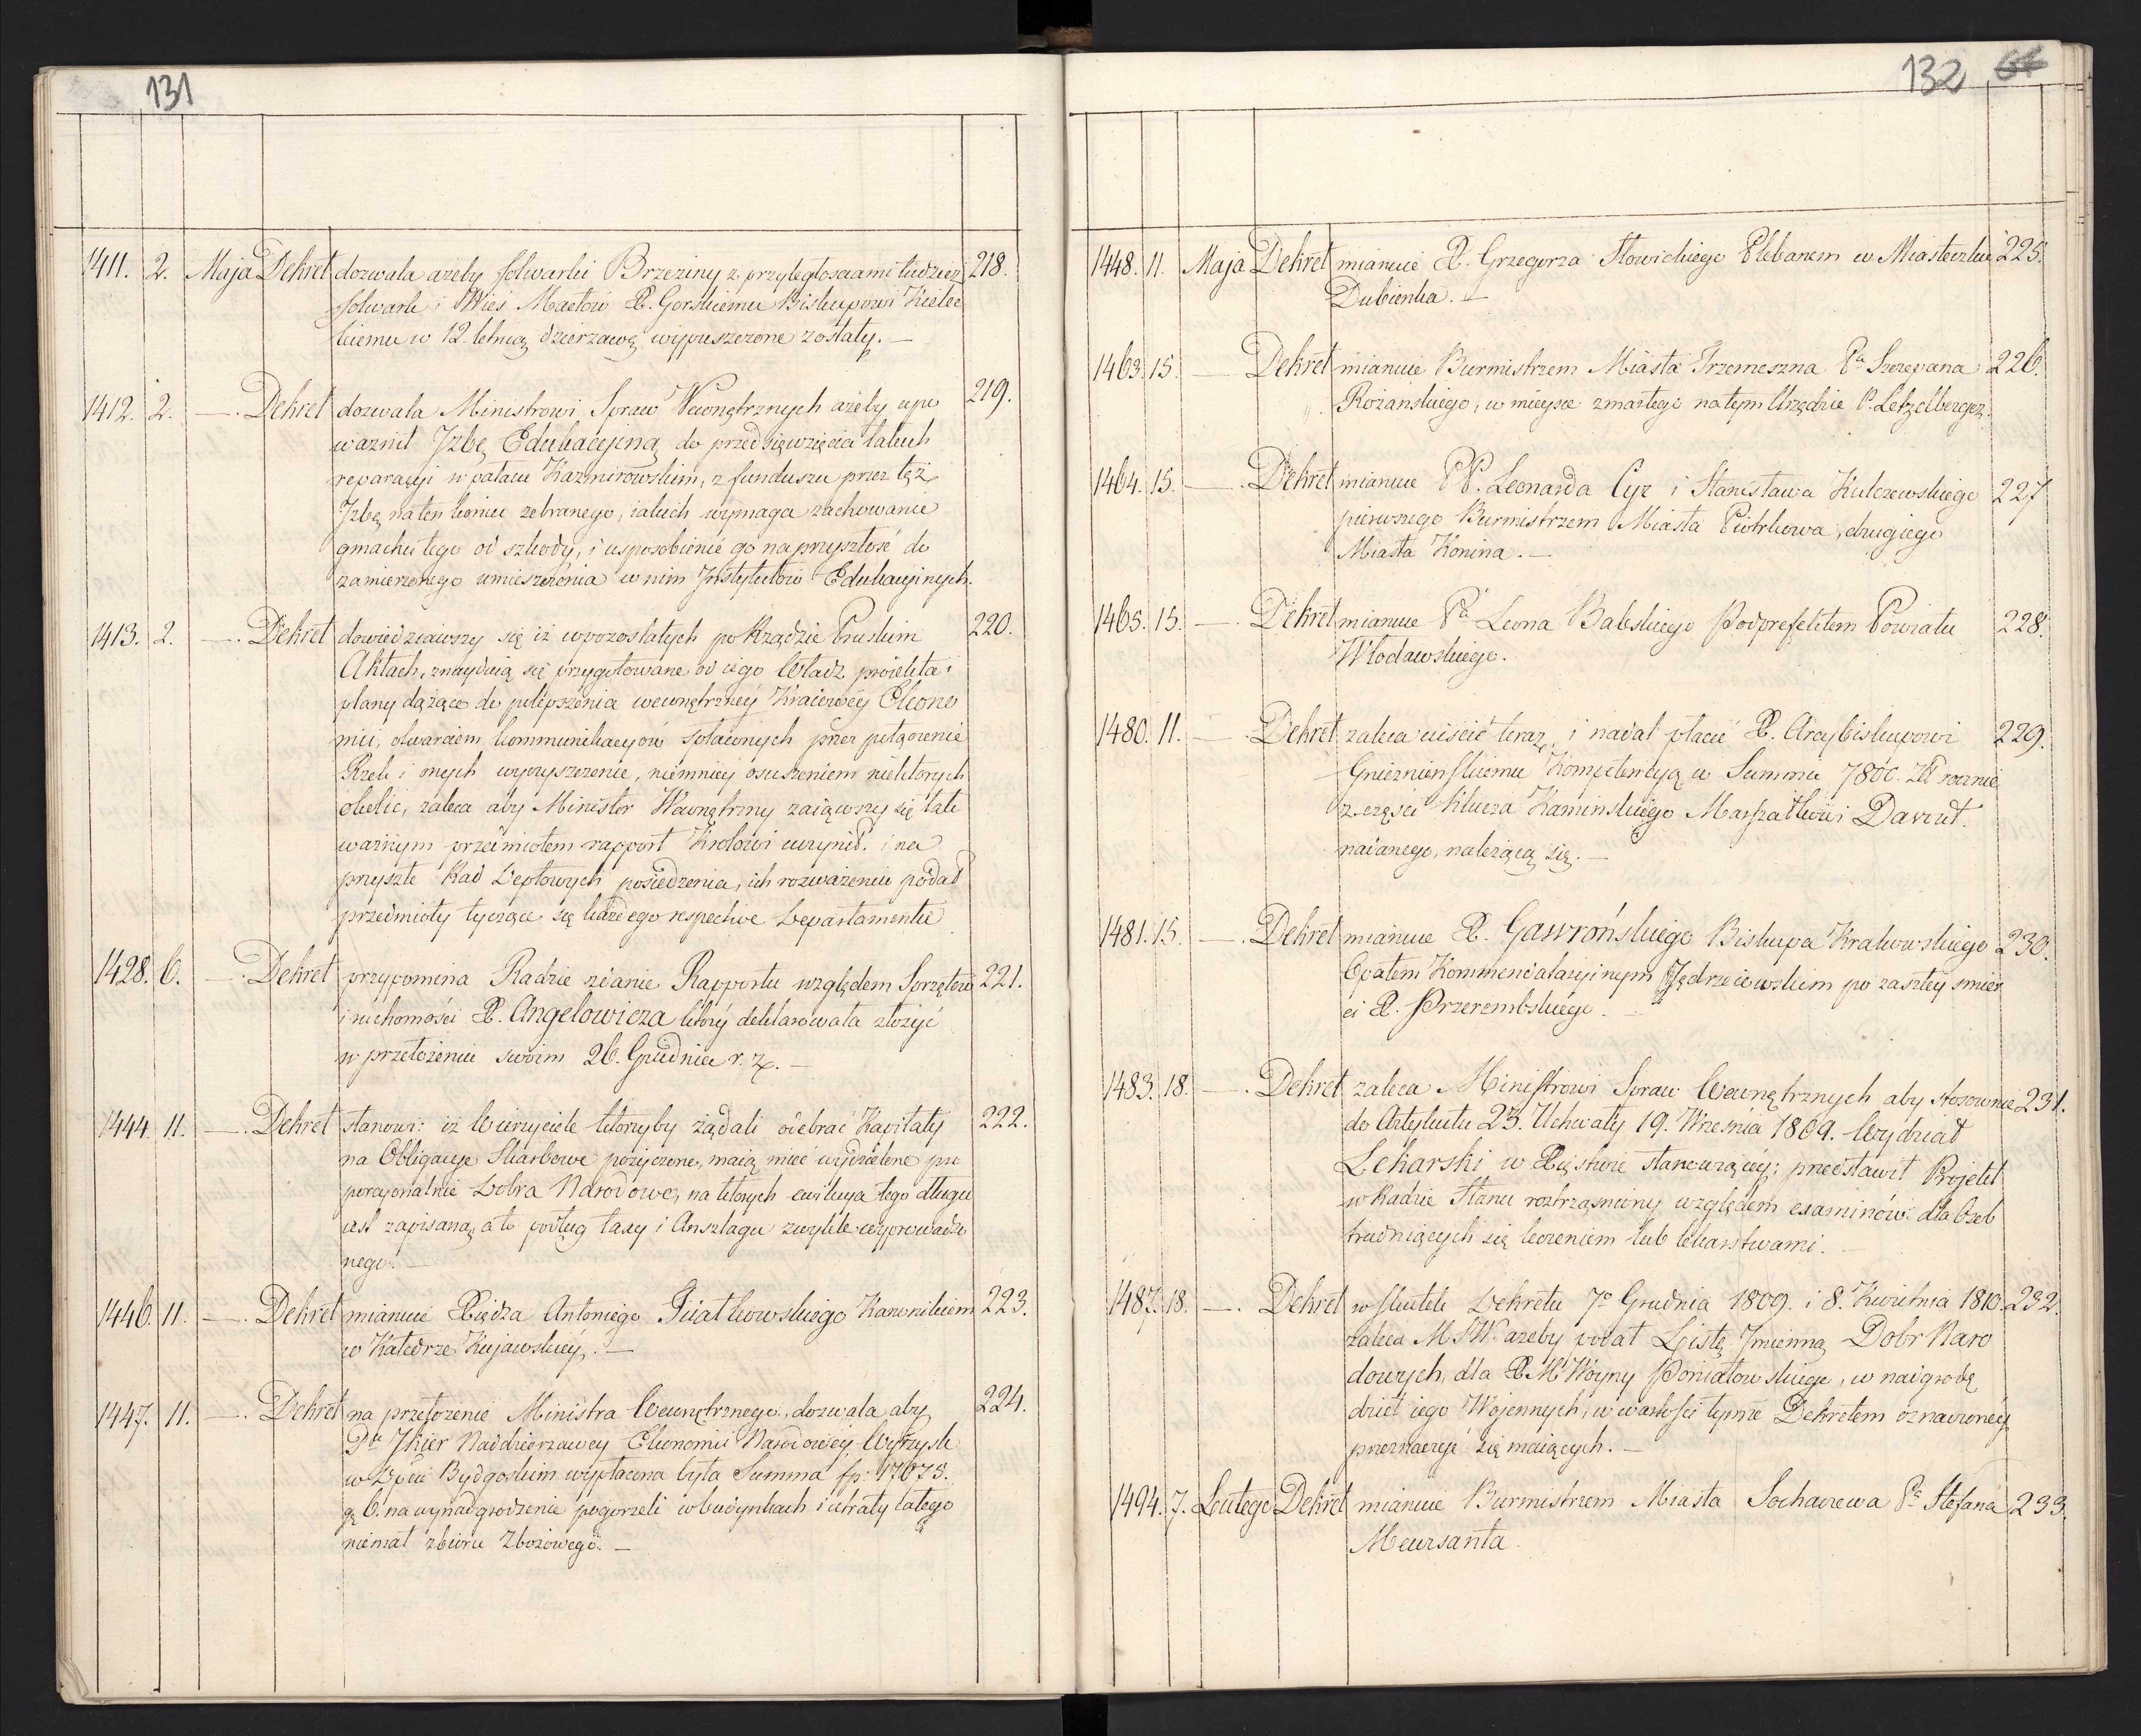 131
1411. 2. Maja Dekret dozwala ażeby folwarki Brzeziny z przyległosciami tudzież 218.
folwark i Wieś Maetów X. Gorskiemu Biskupowi Kielec
kiemu w 12. letnią dzierzawę wypuszczone zostały. —
1412. 2. —. Dekret dozwala Ministrowi Spraw Wewnętrznych ażeby upo 219.
ważnił Jzbę Edukacyjną do przedsięwzięcia takich
reparacyi w pałacu Kazmirowskim, z funduszu przez też
Jzbę na ten koniec zebranego, iakich wymaga zachowanie
gmachu tego od szkody, i usposobienie go na przyszłość do
zamierzonego umieszczenia w nim Jnstytutów Edukacyinych.
1413. 2. —. Dekret dowiedziawszy się iż w pozostałych po Rządzie Pruskim 220.
Aktach, znayduią się przygotowane od iego Władz proiekta i
plany dążące do polepszenia wewnętrzney Kraiowéy Ekono
mii, otwarciem kommunikacyów spławnych przez połączenie
Rzek i onych wyczyszczenie, niemniéy osuszeniem niektórych
okolic, zaleca aby Minister Wewnętrzny zaiąwszy się tak
ważnym przedmiotem rapport Krolowi uczynił. i na
przyszłe Rad Deptowych posiedzenia, ich rozważeniu podał
przedmioty tyczące się każdego respective Departamentu
1428. 6. —. Dekret przypomina Radzie zdanie Rapportu względem Sprzętów 221.
i ruchomości X. Angelowicza który deklarowała złożyć
w przełożeniu swoim 26. Grudnia r. z. —
1444. 11. —. Dekret stanowi: iż Wierzyciele którzyby żądali odebrać Kapitały 222.
na Obligacye Skarbowe pożyczone, maią mieć wydzielone pro
porcyonalnie Dobra Narodowe, na których ewikcya tego długu
iest zapisaną, a to podług taxy i Anszlagu zwykle wyprowadzo
nego. —
1446. 11. —. Dekret mianuie Xiędza Antoniego Piatkowskiego Kanonikiem 223.
w Katedrze Kujawskiéy. —
1447. 11. —. Dekret na przełożenie Ministra Wewnętrznego, dozwala aby 224.
Pu Jkier Naddzierzawcy Ekonomii Narodowéy Wyrzysk
w Dpcie Bydgoskim wypłacona była Summa fp: 17073.
g. 6. na wynadgrodzenie pogorzeli w budynkach i utraty całego
niemal zbioru Zbożowego. —
132
1448. 11. Maja Dekret mianuie X. Grzegorza Słowickiego Plebanem w Miasteczku 225.
Dubienka. —
1463. 15. —. Dekret mianuie Burmistrzem Miasta Trzemeszna Pa Szczepana 226.
Rożanskiego, w mieysce zmarłego na tym Urzędzie P. Letzelberger.
1464. 15. —. Dekret mianuie PP. Leonarda Cyr i Stanisława Kulczewskiego 227
pierwszego Burmistrzem Miasta Piotrkowa, drugiego
Miasta Konina. —
1465. 15. —. Dekret mianuie Pa Leona Babskiego Podprefektem Powiatu 228.
Włodawskiego.
1480. 11. —. Dekret zaleca uiścić teraz, i nadal płacić X. Arcybiskupowi 229.
Gnieznienskiemu Kompetencyą w Summie 7800. Zł rocznie
z części klucza Kaminskiego Marszałkowi Davout.
nadanego, należącą się. —
1481. 15. —. Dekret mianuie X. Gawrońskiego Biskupa Krakowskiego 230.
Opatem Kommendataryjnym Jędrzeiewskim po zaszłey smier
ci X. Przerembskiego. —
1483. 18. —. Dekret zaleca Ministrowi Spraw Wewnętrznych aby stosownie 231.
do Artykułu 23. Uchwały 19. Września 1809. Wydział
Lekarski w Xięstwie stanowiącéy: przedstawił Projekt
w Radzie Stanu roztrząśniony względem examinów dla Osób
trudniących się leczeniem lub lekarstwami. —
1487. 18. —. Dekret w skutek Dekretu 7o Grudnia 1809. i 8. Kwietnia 1810. 232.
zaleca MSW. ażeby podał Listę Jmienną Dobr Naro
dowych, dla X. M. Woyny Poniatowskiego, w nadgrodę
dzieł iego Wojennych, w wartości tymże Dekretem oznaczonéy
przeznaczyć się maiących. —
1494. 7. Lutego Dekret mianuie Burmistrzem Miasta Sochaczewa Pa Stefana 233.
Meursanta.